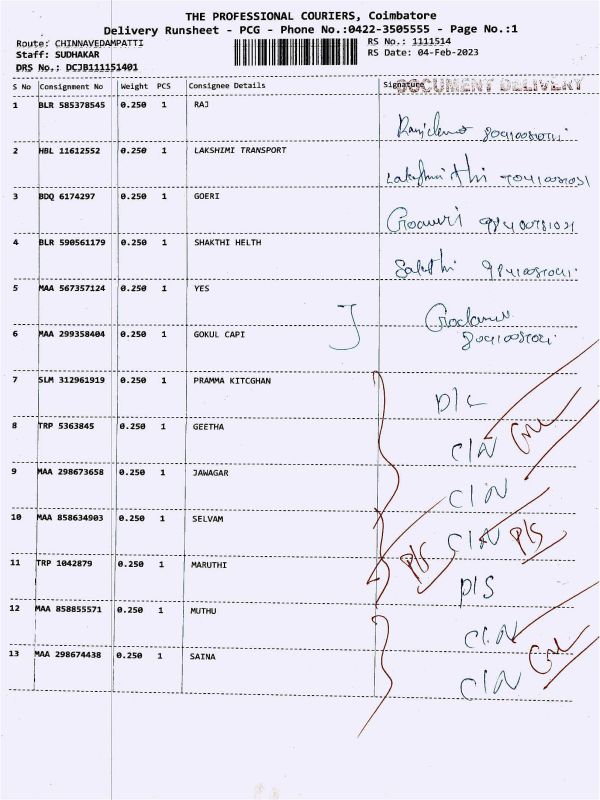 THE PROFESSIONAL COURIERS, Coimbatore
Delivery Runsheet - PCG - Phone No.:0422-3505555 - Page No.:1
Route: CHINNAVEDAMPATTI RS No.: 1111514
Staff: SUDHAKAR RS Date: 04-Feb-2023
DRS No.: DCJB111151401
S No Consignment No Weight PCS Consignee Details Signature DOCUMENT DELIVERY
1 BLR 585378545 0.250 1 RAJ
2 HBL 11612552 0.250 1 LAKSHIMI TRANSPORT
3 BDQ 6174297 0.250 1 GOERI
4 BLR 590561179 0.250 1 SHAKTHI HELTH
5 MAA 567357124 0.250 1 YES
6 MAA 299358404 0.250 1 GOKUL CAPI
7 SLM 312961919 0.250 1 PRAMMA KITCGHAN
8 TRP 5363845 0.250 1 GEETHA C/N
9 MAA 298673658 0.250 1 JAWAGAR C/N
10 MAA 858634903 0.250 1 SELVAM C/N P/S
11 TRP 1042879 0.250 1 MARUTHI P/S P/S
12 MAA 858855571 0.250 1 MUTHU C/N
13 MAA 298674438 0.250 1 SAINA C/N